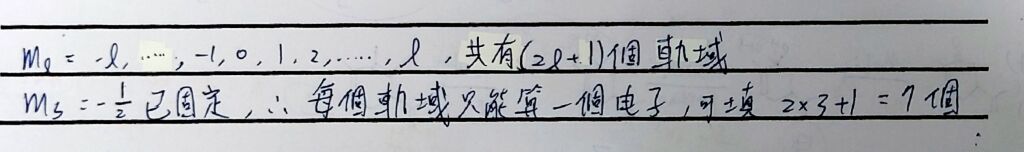 mℓ = -ℓ, ……, -1, 0, 1, 2, ……, ℓ , 共有(2ℓ+1)個軌域
ms = -1/2 已固定, ∴ 每個軌域只能算一個电子, 可填 2×3+1 = 7個